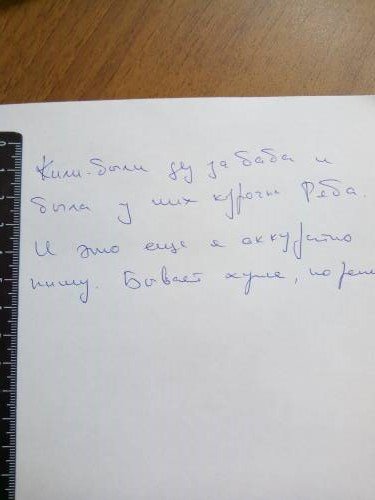 Жили-были де да баба и
была у них курочка Ряба.
И это еще я аккуратно
пишу. Бывает хуже, но